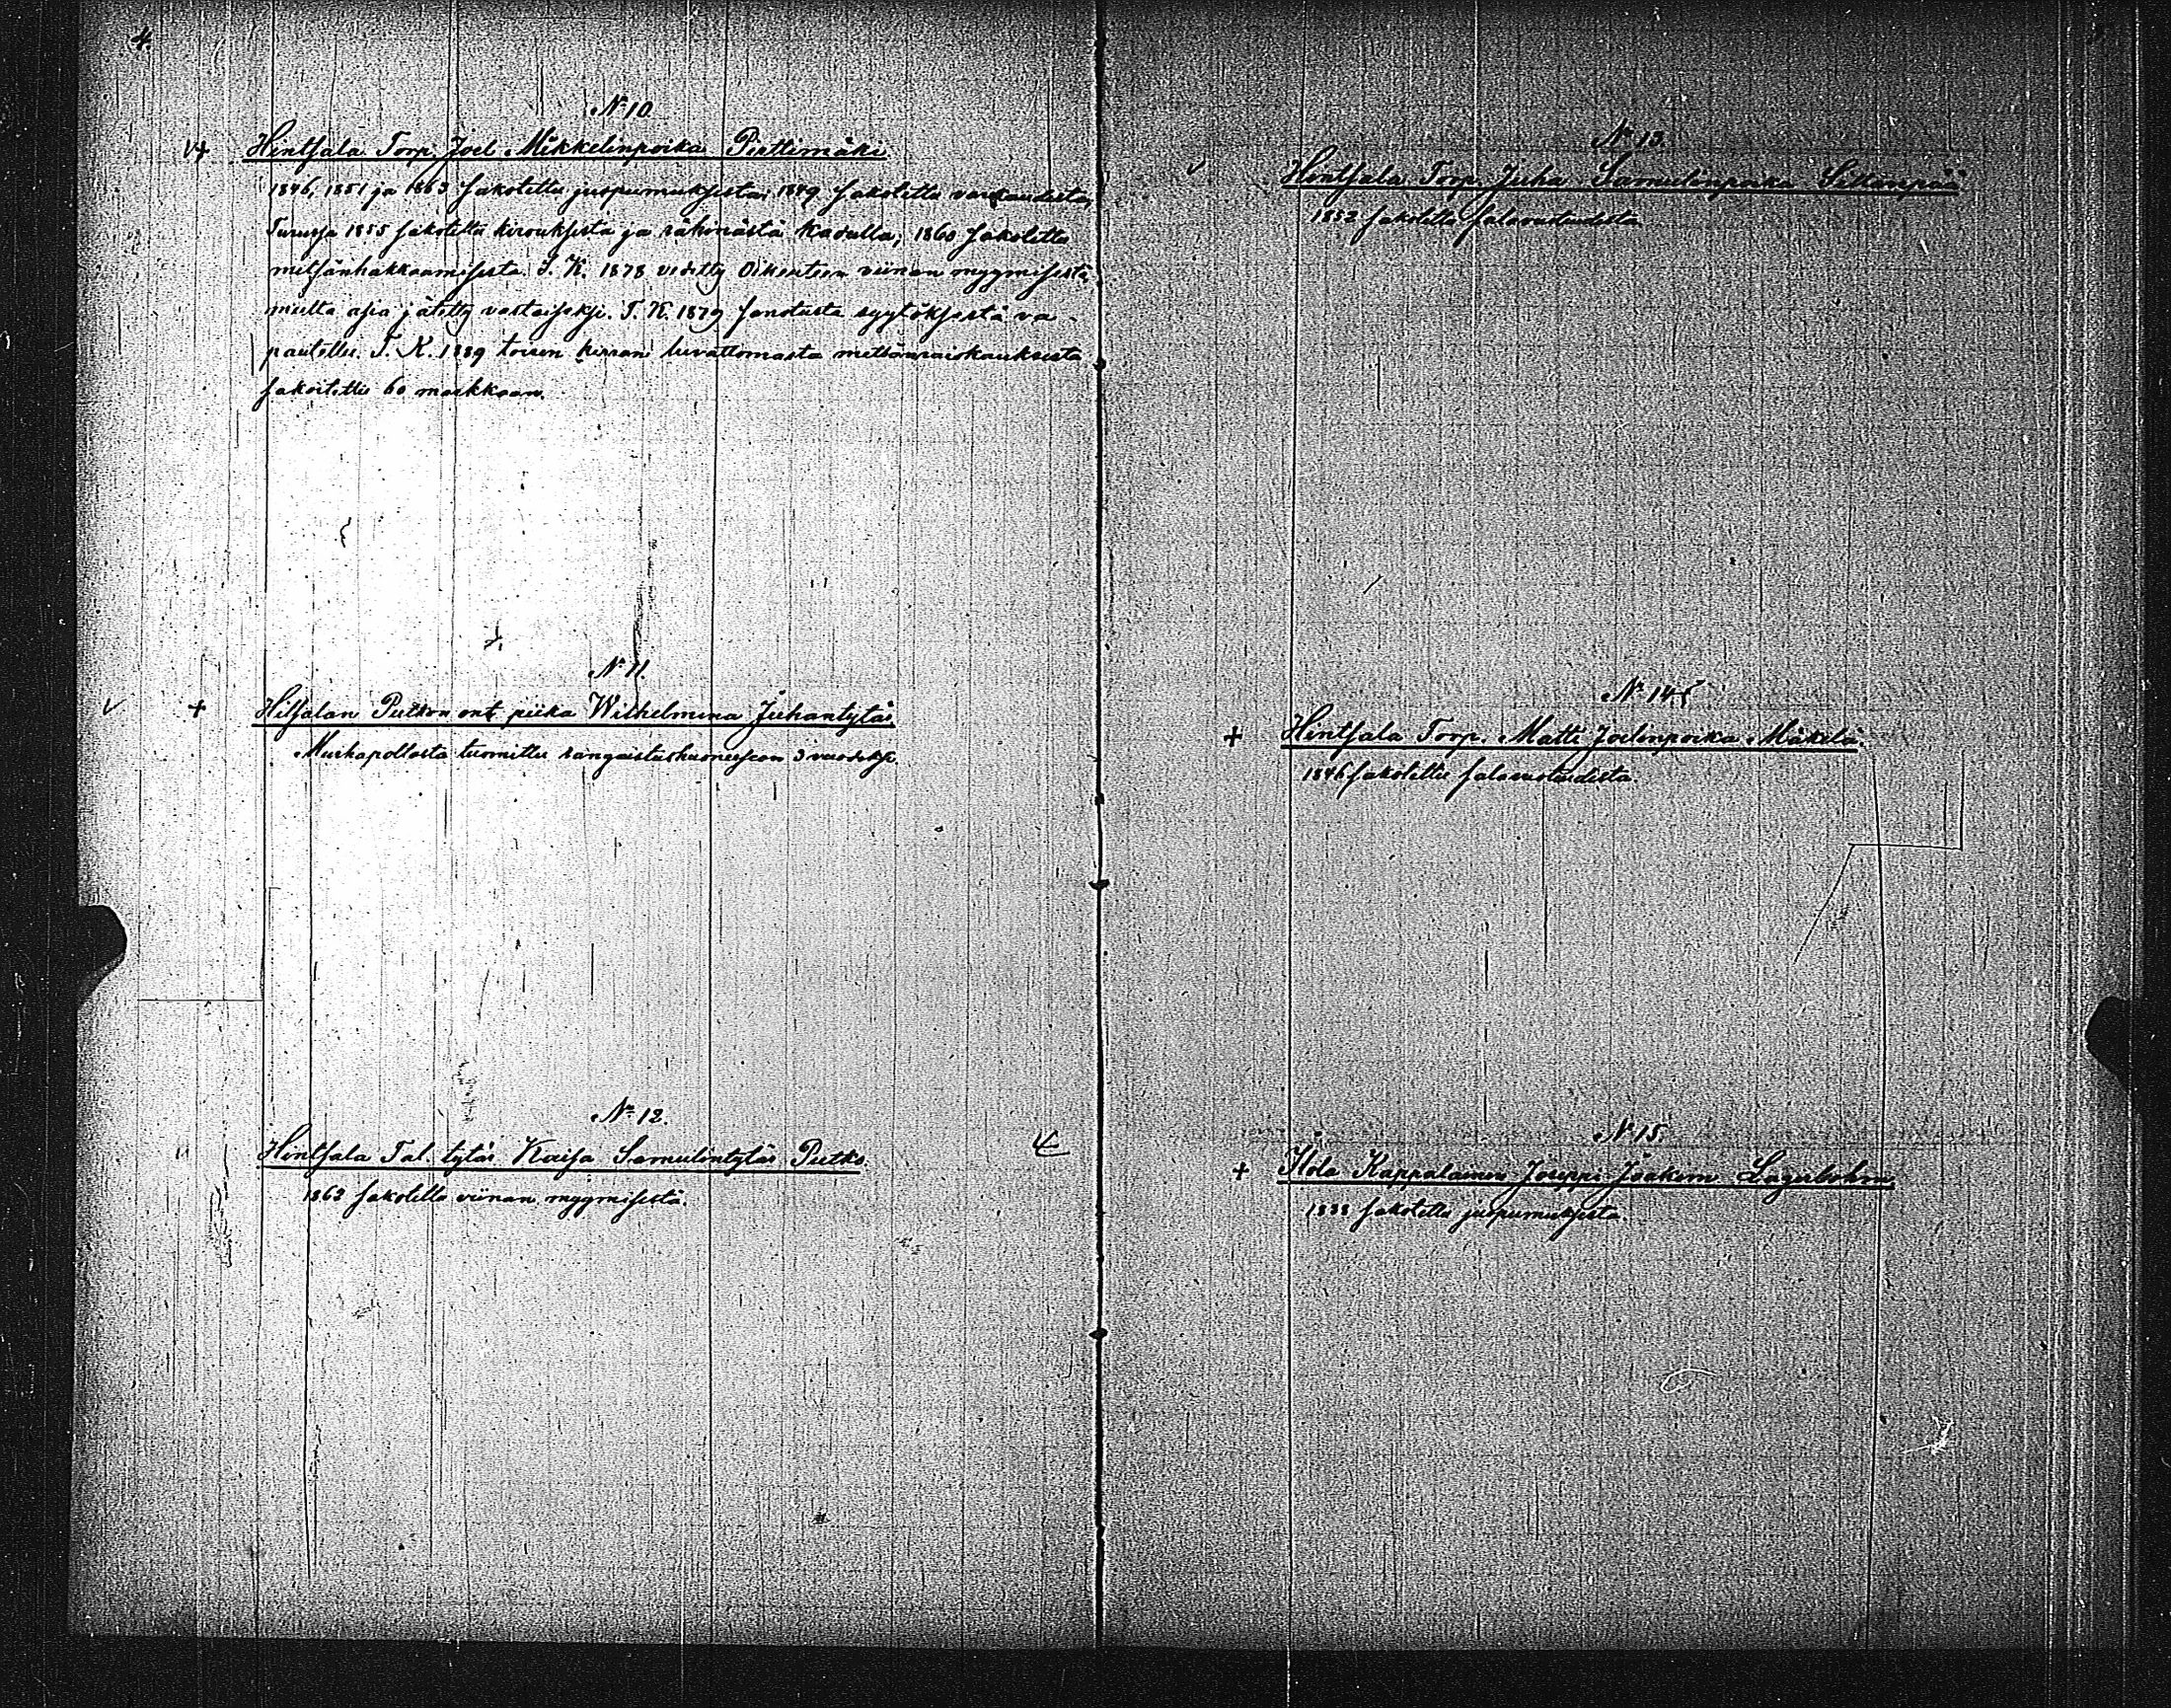 4.
N:10.
Hintsala Torp. Joel Mikkelinpoika Perttimäki
1846, 1851 ja 1863 sakotettu juopumuksesta; 1849 sakotettu varkaudesta,
Turussa 1855 sakotettu kirouksista ja rähinästä kadulla; 1860 sakotettu
metsänhakkaamisesta. S. K. 1878 vedetty Oikeuteen viinan myymisestä,
mutta asia jätetty vastaiseksi. T. K. 1879 sanotusta syytöksestä va-
pautettu. T. K. 1889 toisen kerran luvattomasta metsänraiskauksesta
sakoitettu 60 markkaan.
N:11.
Hiltsalan Putkon piika Wilhelmina Juhantytär
Murhapoltosta tuomittu rangaistushuoneeseen 3 vuodeksi.
N:12.
Hintsala Tal. tytär Kaisa Samulintytär Putko.
1863 sakotettu viinan myymisestä.
N:13.
Hintsala Torp. Juha Samulinpoika
1852 sakotettu salavuoteudesta
N:14.
Hintsala Torp. Matti Joelinpoika Mäkelä.
1846 sakotettu salavuoteudesta.
N:15.
Kappalainen Joseppi Joakim Lagerbohm
1838 sakotettu juopumuksesta.